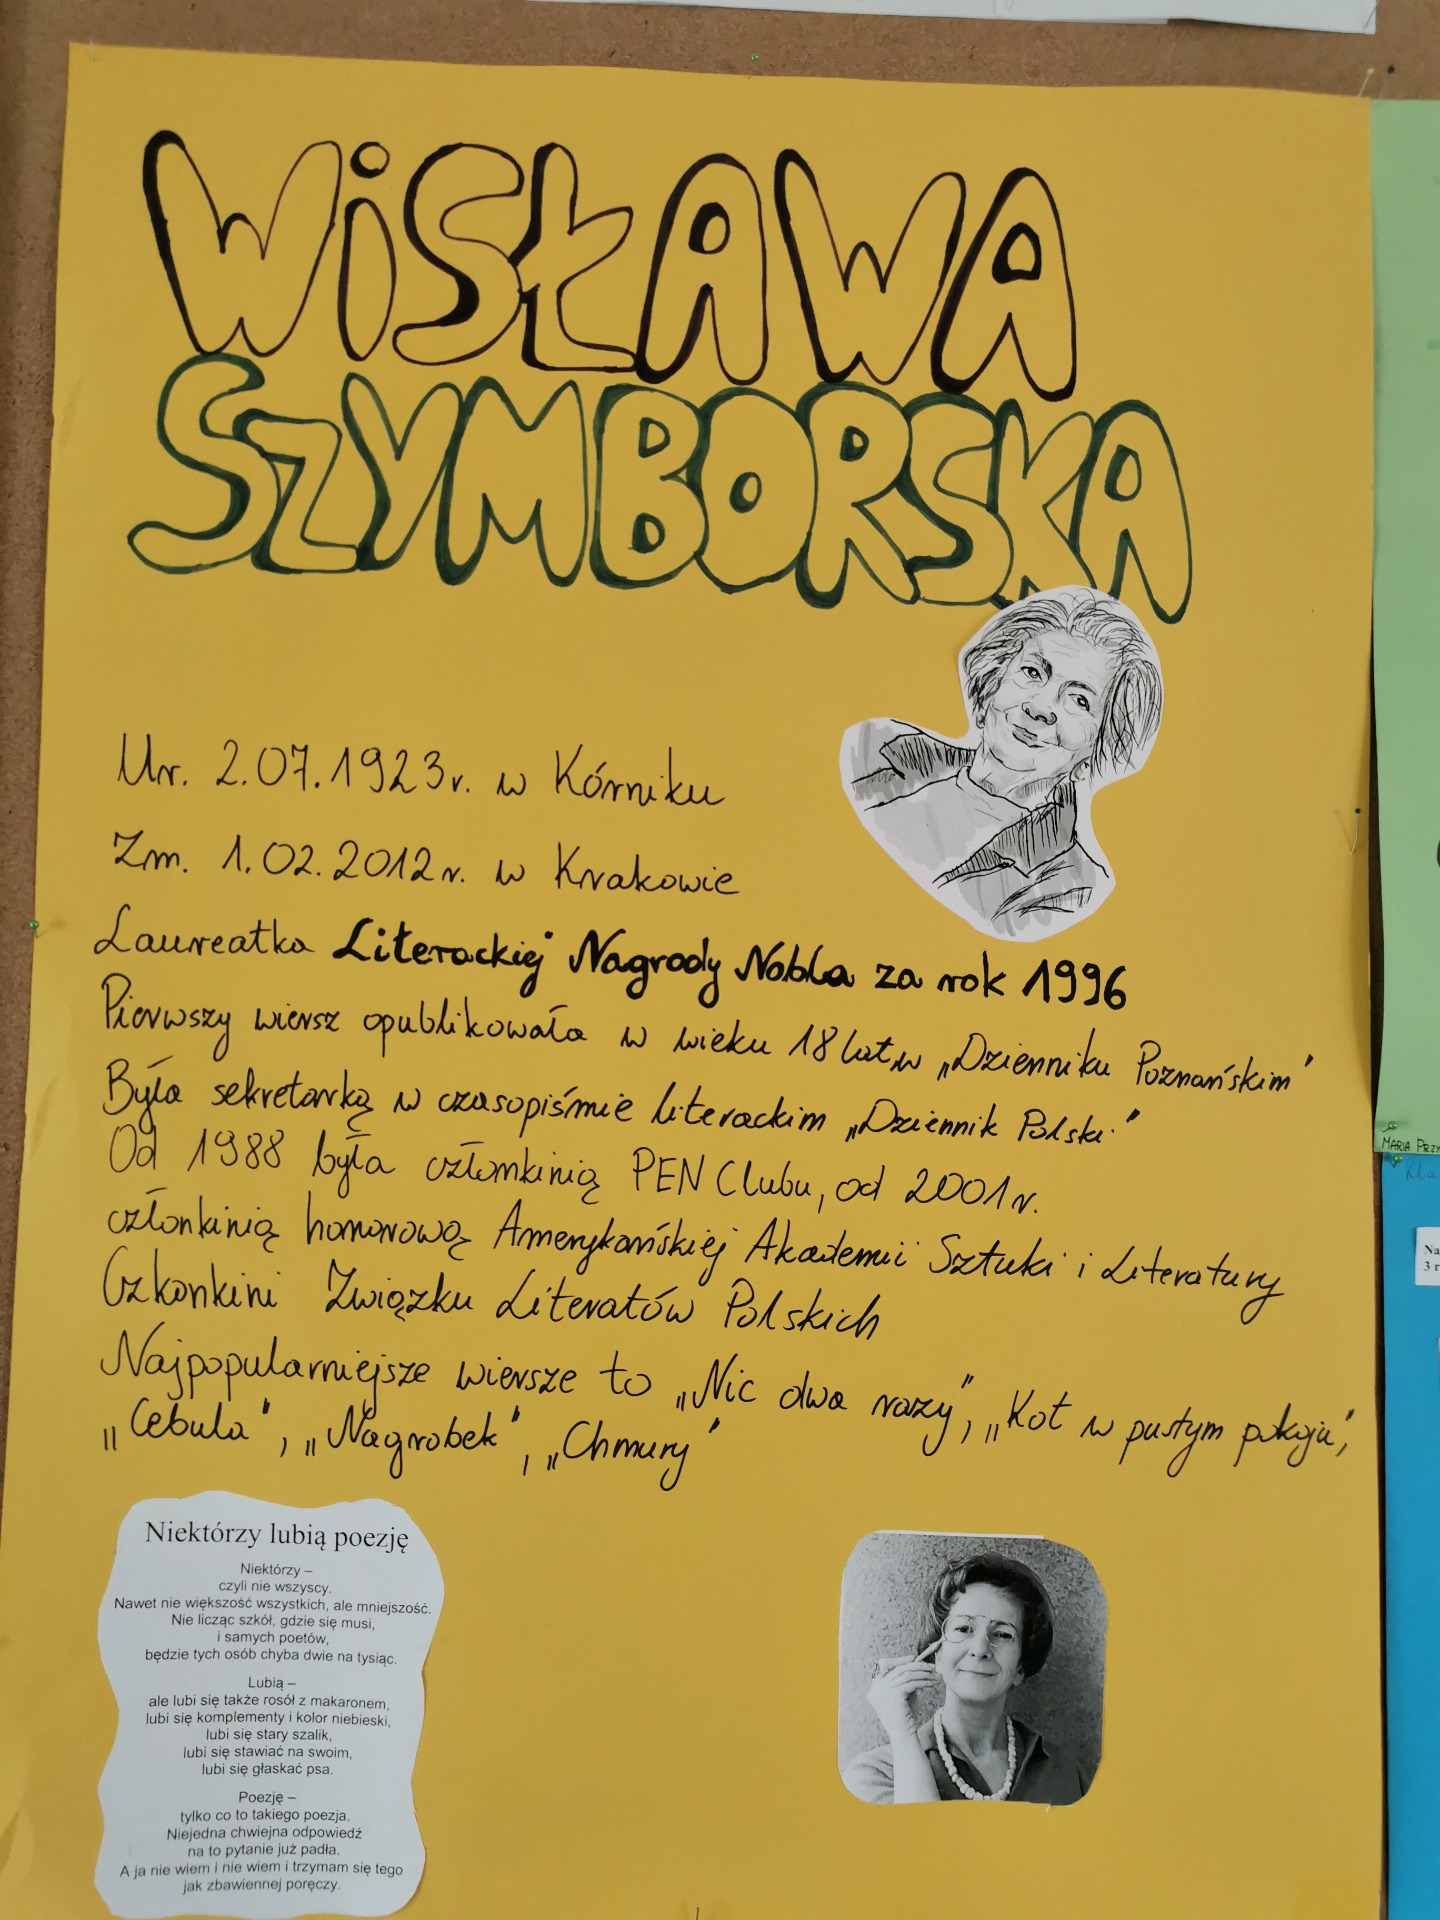 WiSŁAWA
SZYMBORSKA
Ur. 2.07.1923r. w Kórniku
Zm. 1.02.2012r. w Krakowie
Laureatka Literackiej Nagrody Nobla za rok 1996
Pierwszy wiersz opublikowała w wieku 18 lat w „Dzienniku Poznańskim"
Była sekretarką w czasopiśmie literackim „Dziennik Polski"
Od 1988 była członkinią PEN Clubu, od 2001r.
członkinią honorową Amerykańskiej Akademii Sztuki i Literatury
Czkonkini Związku Literatów Polskich
Najpopularniejsze wiersze to „Nic dwa razy", „Kot w pustym pokoju",
„Cebula", „Nagrobek", „Chmury"
Niektórzy lubią poezję
Niektórzy –
czyli nie wszyscy.
Nawet nie większość wszystkich, ale mniejszość.
Nie licząc szkół, gdzie się musi,
i samych poetów,
będzie tych osób chyba dwie na tysiąc.
Lubią –
ale lubi się także rosół z makaronem,
lubi się komplementy i kolor niebieski,
lubi się stary szalik,
lubi się stawiać na swoim,
lubi się głaskać psa.
Poezję –
tylko co to takiego poezja.
Niejedna chwiejna odpowiedź
na to pytanie już padła.
A ja nie wiem i nie wiem i trzymam się tego
jak zbawiennej poręczy.
MARIA PRZY
Kla
Na
3 r